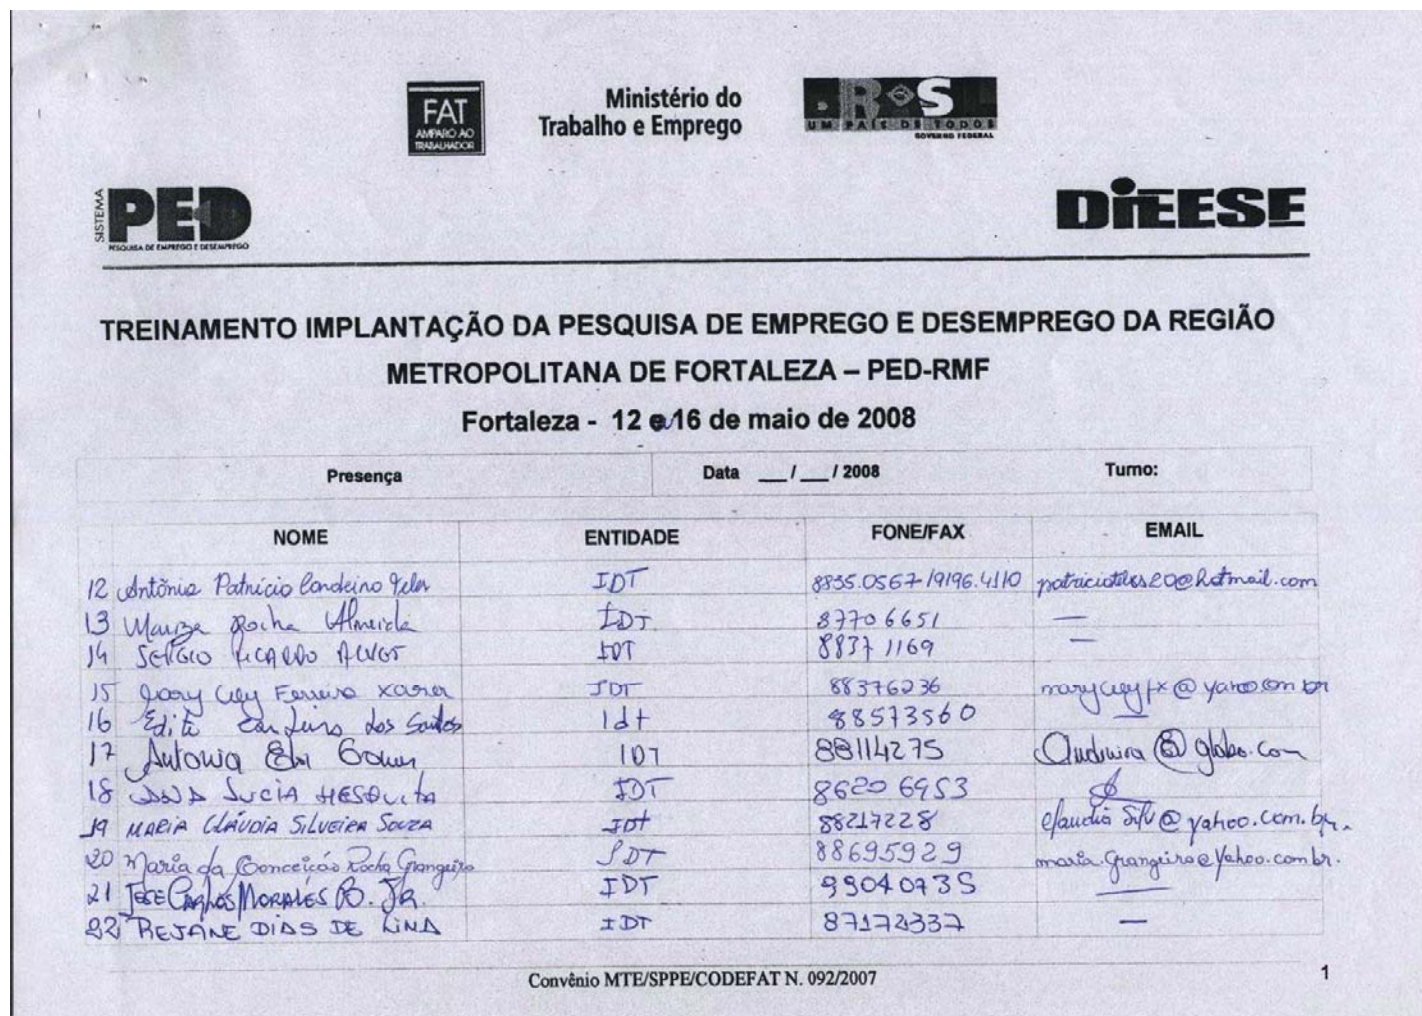 FAT
AMPARO AO
TRABALHADOR
Ministério do
Trabalho e Emprego
BRASIL
UM PAÍS DE TODOS
GOVERNO FEDERAL
SISTEMA
PED
PESQUISA DE EMPREGO E DESEMPREGO
DIEESE
TREINAMENTO IMPLANTAÇÃO DA PESQUISA DE EMPREGO E DESEMPREGO DA REGIÃO
METROPOLITANA DE FORTALEZA – PED-RMF
Fortaleza - 12 a 16 de maio de 2008
Presença Data __/__/ 2008 Turno:
NOME ENTIDADE FONE/FAX EMAIL
12 Antônio Patrício IDT 8835.0567/9196.4110 patricioteles20@hotmail.com
13 Rocha Almeida IDT 87706651 —
14 SERGIO RICARDO ALVES IDT 88371169 —
15 Ferreira IDT 88376236
16 Edite dos Santos Idt 88573560 —
17 Antonia IDT 88114275
18 ANA LUCIA MESQUITA IDT 86206953
19 MARIA CLÁUDIA SILVEIRA SOUZA IDt 88217228
20 Maria da Conceição Rocha Grangeiro IDT 88695929 maria.grangeiro@yahoo.com.br.
21 JOSE CARLOS MORALES B. JR. IDT 99040735 —
22 REJANE DIAS DE LIMA IDT 87172337 —
Convênio MTE/SPPE/CODEFAT N. 092/2007
1